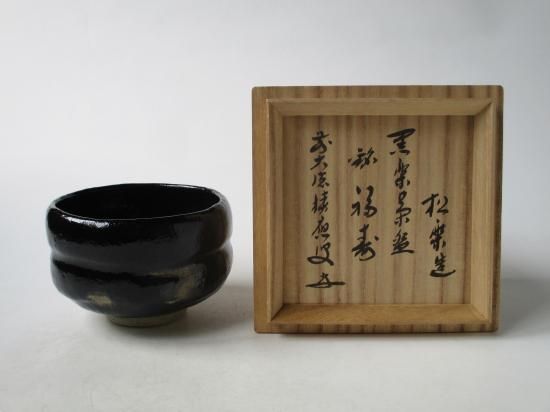 松楽造
黒楽茶盌
銘 福寿
前大徳